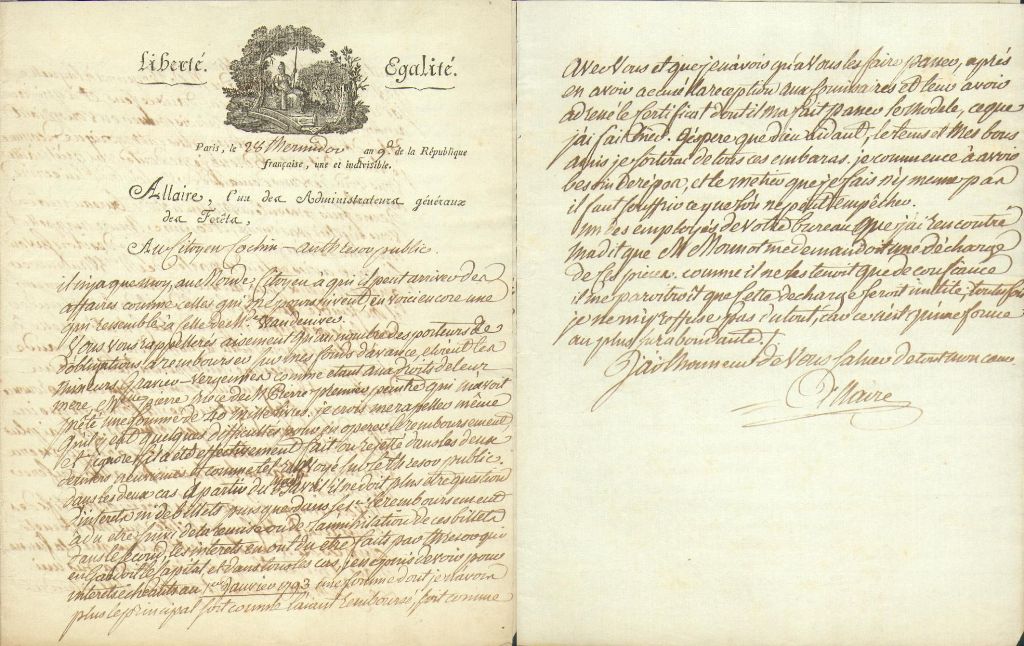 Liberté. Egalité.
Paris, le 28 Thermidor an 9e. de la République
française, une et indivisible.
Allaire, l'un des Administrateurs généraux
des Forêts,
Au Citoyen Cochin au thresor public
il n'y a que moy, au Monde, Citoyen à qui il peut arriver des
affaires comme celles qui me poursuivent, en voici encore une
qui ressemble à celle de Mr. Vandeniver.
Vous vous rappellerés aisement qu'au nombre des porteurs de
d'obligations à rembourser sur mes fonds d'avance, etoient les
mineurs comme etant aux droits de leur
mere, et niece de Mr. Pierre premier peintre qui m'avoit
prété une somme de 40 mille livres. je crois me rapeller même
qu'il y eut quelques difficultés pour en operer le remboursement,
et j'ignore s'il a été effectivement fait ou rejetté dans les deux
derniers comme et renvoyé sur le thresor public.
dans les deux cas à partir du il ne doit plus etre question
d'interets ni de billets puisque dans le 1er. le remboursement
a du etre suivi de la remise ou de l'annihilation de ces billets
dans le second, les interets en ont du etre faits par le thresor qui
en gardoit le capital et dans tous les cas, je ne puis devoir pour
interets echeants au 1er. Janvier 1793, une somme dont je n'avois
plus le principal soit comme l'ayant remboursé, soit comme
avec Vous et que je n'avois qu'à Vous les faire passer, après
en avoir accusé la reception aux Commissaires et leur avoir
adressé le certificat dont il m'a fait passer le modele, ce que
j'ai fait. J'espere que dieu aidant, le tems et mes bons
amis je sortirai de tous ces embaras. je commence à avoir
besoin de repos, et le metier que je fais n'y mene pas
il faut souffrir ce que l'on ne peut empêcher.
un des employés de votre bureau que j'ai rencontré
m'a dit que M. Monnot me demandoit une décharge
de ces pieces. comme il ne les tenoit que de confiance
il me paroitroit que cette decharge seroit inutile, toutefois
je ne m'y refuse pas du tout, car ce n'est qu'une forme
au plus surabondante.
J'ai l'honneur de Vous saluer de tout mon coeur
Allaire